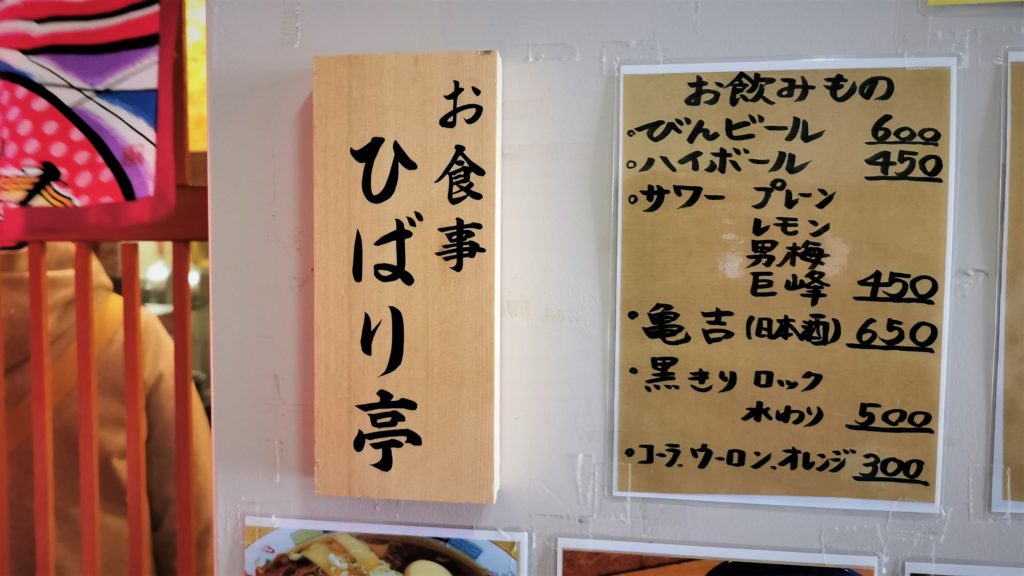 お食事
ひばり亭
お飲みもの
・びんビール 600
・ハイボール 450
・サワー プレーン
レモン
男梅
巨峰 450
・亀吉(日本酒) 650
・黒きり ロック
水わり 500
・コーラ、ウーロン、オレンジ 300